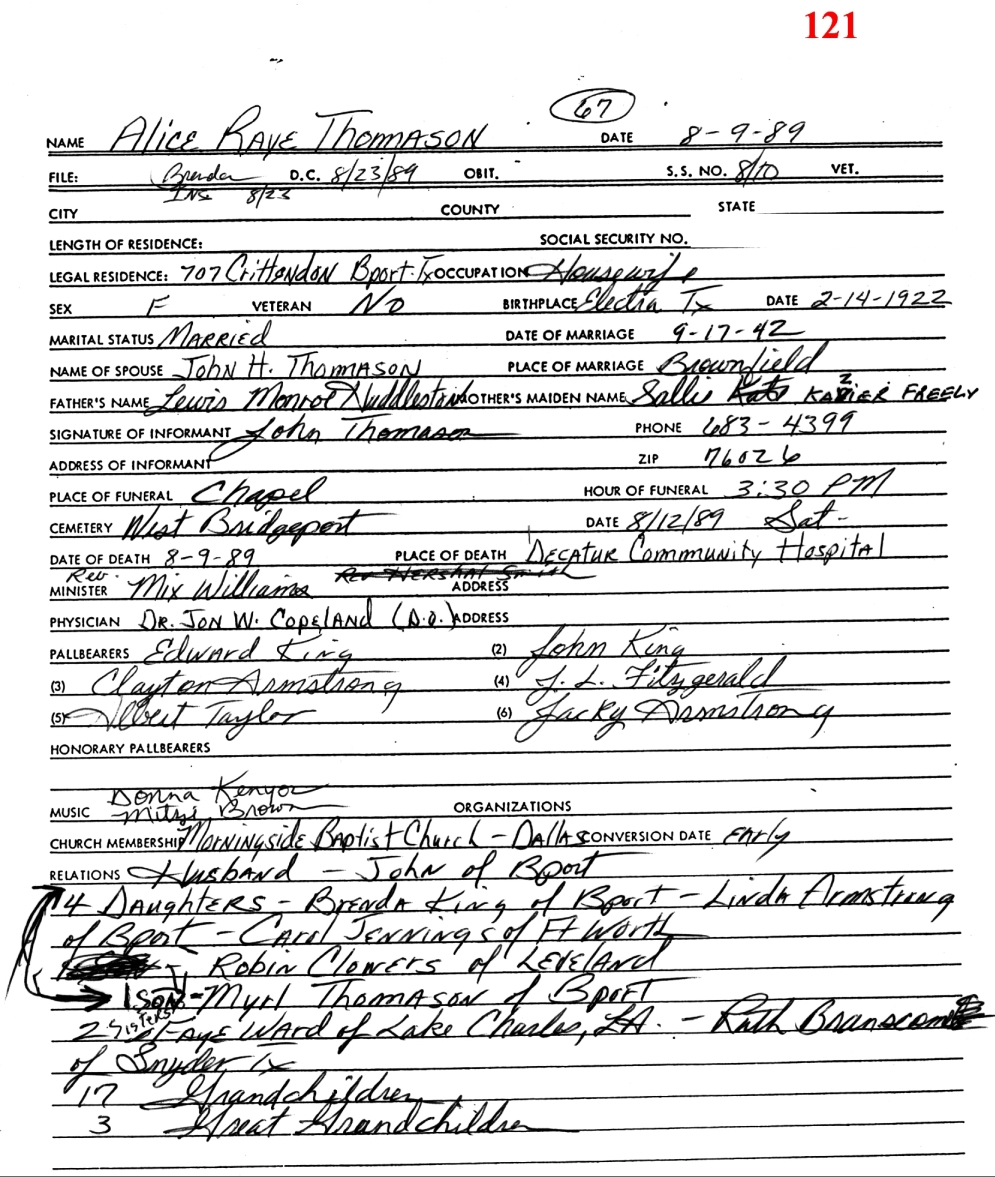 121
67
NAME Alice Raye Thomason DATE 8-9-89
FILE: Brenda D.C. 8/23/89 OBIT. S.S. NO. 8/10 VET.
Ins 8/23
CITY COUNTY STATE
LENGTH OF RESIDENCE: SOCIAL SECURITY NO.
LEGAL RESIDENCE: 707 Crittendon Bport Tx OCCUPATION Housewife
SEX F VETERAN No BIRTHPLACE Electra Tx DATE 2-14-1922
MARITAL STATUS Married DATE OF MARRIAGE 9-17-42
NAME OF SPOUSE John H. Thomason PLACE OF MARRIAGE Brownfield
FATHER'S NAME Lewis Monroe Huddleston MOTHER'S MAIDEN NAME Sallie FREELY
SIGNATURE OF INFORMANT John Thomason PHONE 683-4399
ADDRESS OF INFORMANT ZIP 76026
PLACE OF FUNERAL Chapel HOUR OF FUNERAL 3:30 PM
CEMETERY West Bridgeport DATE 8/12/89 Sat-
DATE OF DEATH 8-9-89 PLACE OF DEATH Decatur Community Hospital
Rev. Rev Hershal Smith
MINISTER Mix Williams ADDRESS
PHYSICIAN Dr. Jon W. Copeland (D.O.) ADDRESS
PALLBEARERS Edward King (2) John King
(3) Clayton Armstrong (4) J. L. Fitzgerald
(5) Albert Taylor (6) Jacky Armstrong
HONORARY PALLBEARERS
Donna Kenyon
MUSIC Mitzi Brown ORGANIZATIONS
CHURCH MEMBERSHIP Morningside Baptist Church - Dallas CONVERSION DATE Early
RELATIONS Husband - John of Bport
4 Daughters - Brenda King of Bport - Linda Armstrong
of Bport - Carol Jennings of Ft Worth
- Robin Clowers of Leveland
1 Son - Myrl Thomason of Bport
2 sisters Faye Ward of Lake Charles, LA. - Ruth Branscom
of Snyder Tx
17 Grandchildren
3 Great Grandchildren